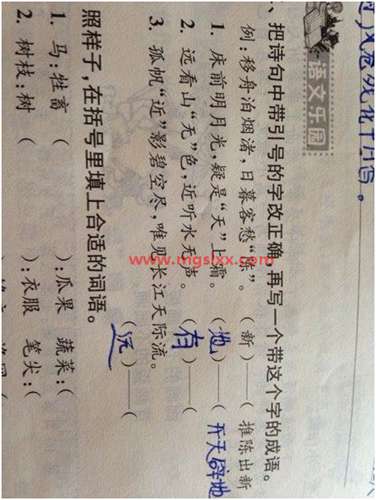 语文乐园
、把诗句中带引号的字改正确,再写一个带这个字的成语。
例:移舟泊烟渚,日暮客愁“陈”。(新)——( 推陈出新
1. 床前明月光,疑是“天”上霜。(地)——( 开天辟地
2. 远看山“无”色,近听水无声。(有)——(
3. 孤帆“近”影碧空尽,唯见长江天际流。(远)——(
照样子,在括号里填上合适的词语。
1. 马:牲畜 ( ):瓜果 蔬菜:(
2. 树枝:树 ( ):衣服 笔尖:(
www.mgslxx.com